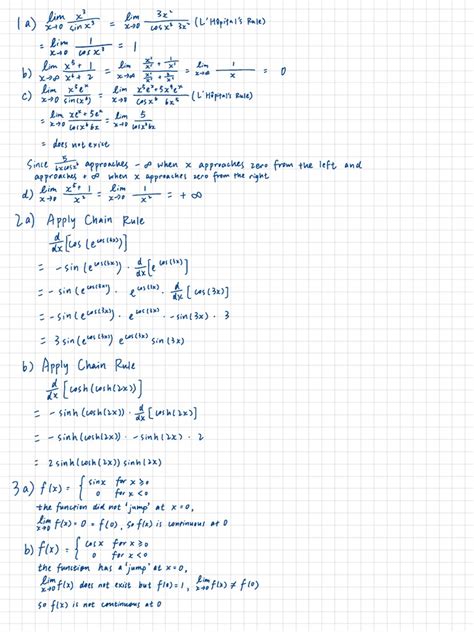 1 a) lim x→0 x³/sin x³ = lim x→0 3x²/cos x³ 3x² (L'Hôpital's Rule)
= lim x→0 1/cos x³ = 1
b) lim x→∞ (x⁵+1)/(x⁶+2) = lim x→∞ = lim x→∞ 1/x = 0
c) lim x→0 x⁵eˣ/sin(x⁶) = lim x→0 (x⁵eˣ+5x⁴eˣ)/(cos x⁶ 6x⁵) (L'Hôpital's Rule)
= lim x→0 (xeˣ+5eˣ)/(cos x⁶ 6x) = lim x→0 5/(cos x⁶ 6x)
= does not exist
Since 5/(6x cos x⁶) approaches -∞ when x approaches zero from the left and
approaches +∞ when x approaches zero from the right
d) lim x→0 (x⁵+1)/x² = lim x→0 1/x² = +∞
2 a) Apply Chain Rule
d/dx [cos (e^cos(3x))]
= -sin (e^cos(3x)) · d/dx [e^cos(3x)]
= -sin (e^cos(3x)) · e^cos(3x) · d/dx [cos(3x)]
= -sin (e^cos(3x)) · e^cos(3x) · -sin(3x) · 3
= 3 sin (e^cos(3x)) e^cos(3x) sin (3x)
b) Apply Chain Rule
d/dx [cosh (cosh(2x))]
= -sinh (cosh(2x)) · d/dx [cosh(2x)]
= -sinh (cosh(2x)) · -sinh(2x) · 2
= 2 sinh (cosh(2x)) sinh(2x)
3 a) f(x) = { sin x for x ≥ 0
0 for x < 0
the function did not 'jump' at x = 0,
lim x→0 f(x) = 0 = f(0), so f(x) is continuous at 0
b) f(x) = { cos x for x ≥ 0
0 for x < 0
the function has a 'jump' at x = 0,
lim x→0 f(x) does not exist but f(0) = 1, lim x→0 f(x) ≠ f(0)
so f(x) is not continuous at 0